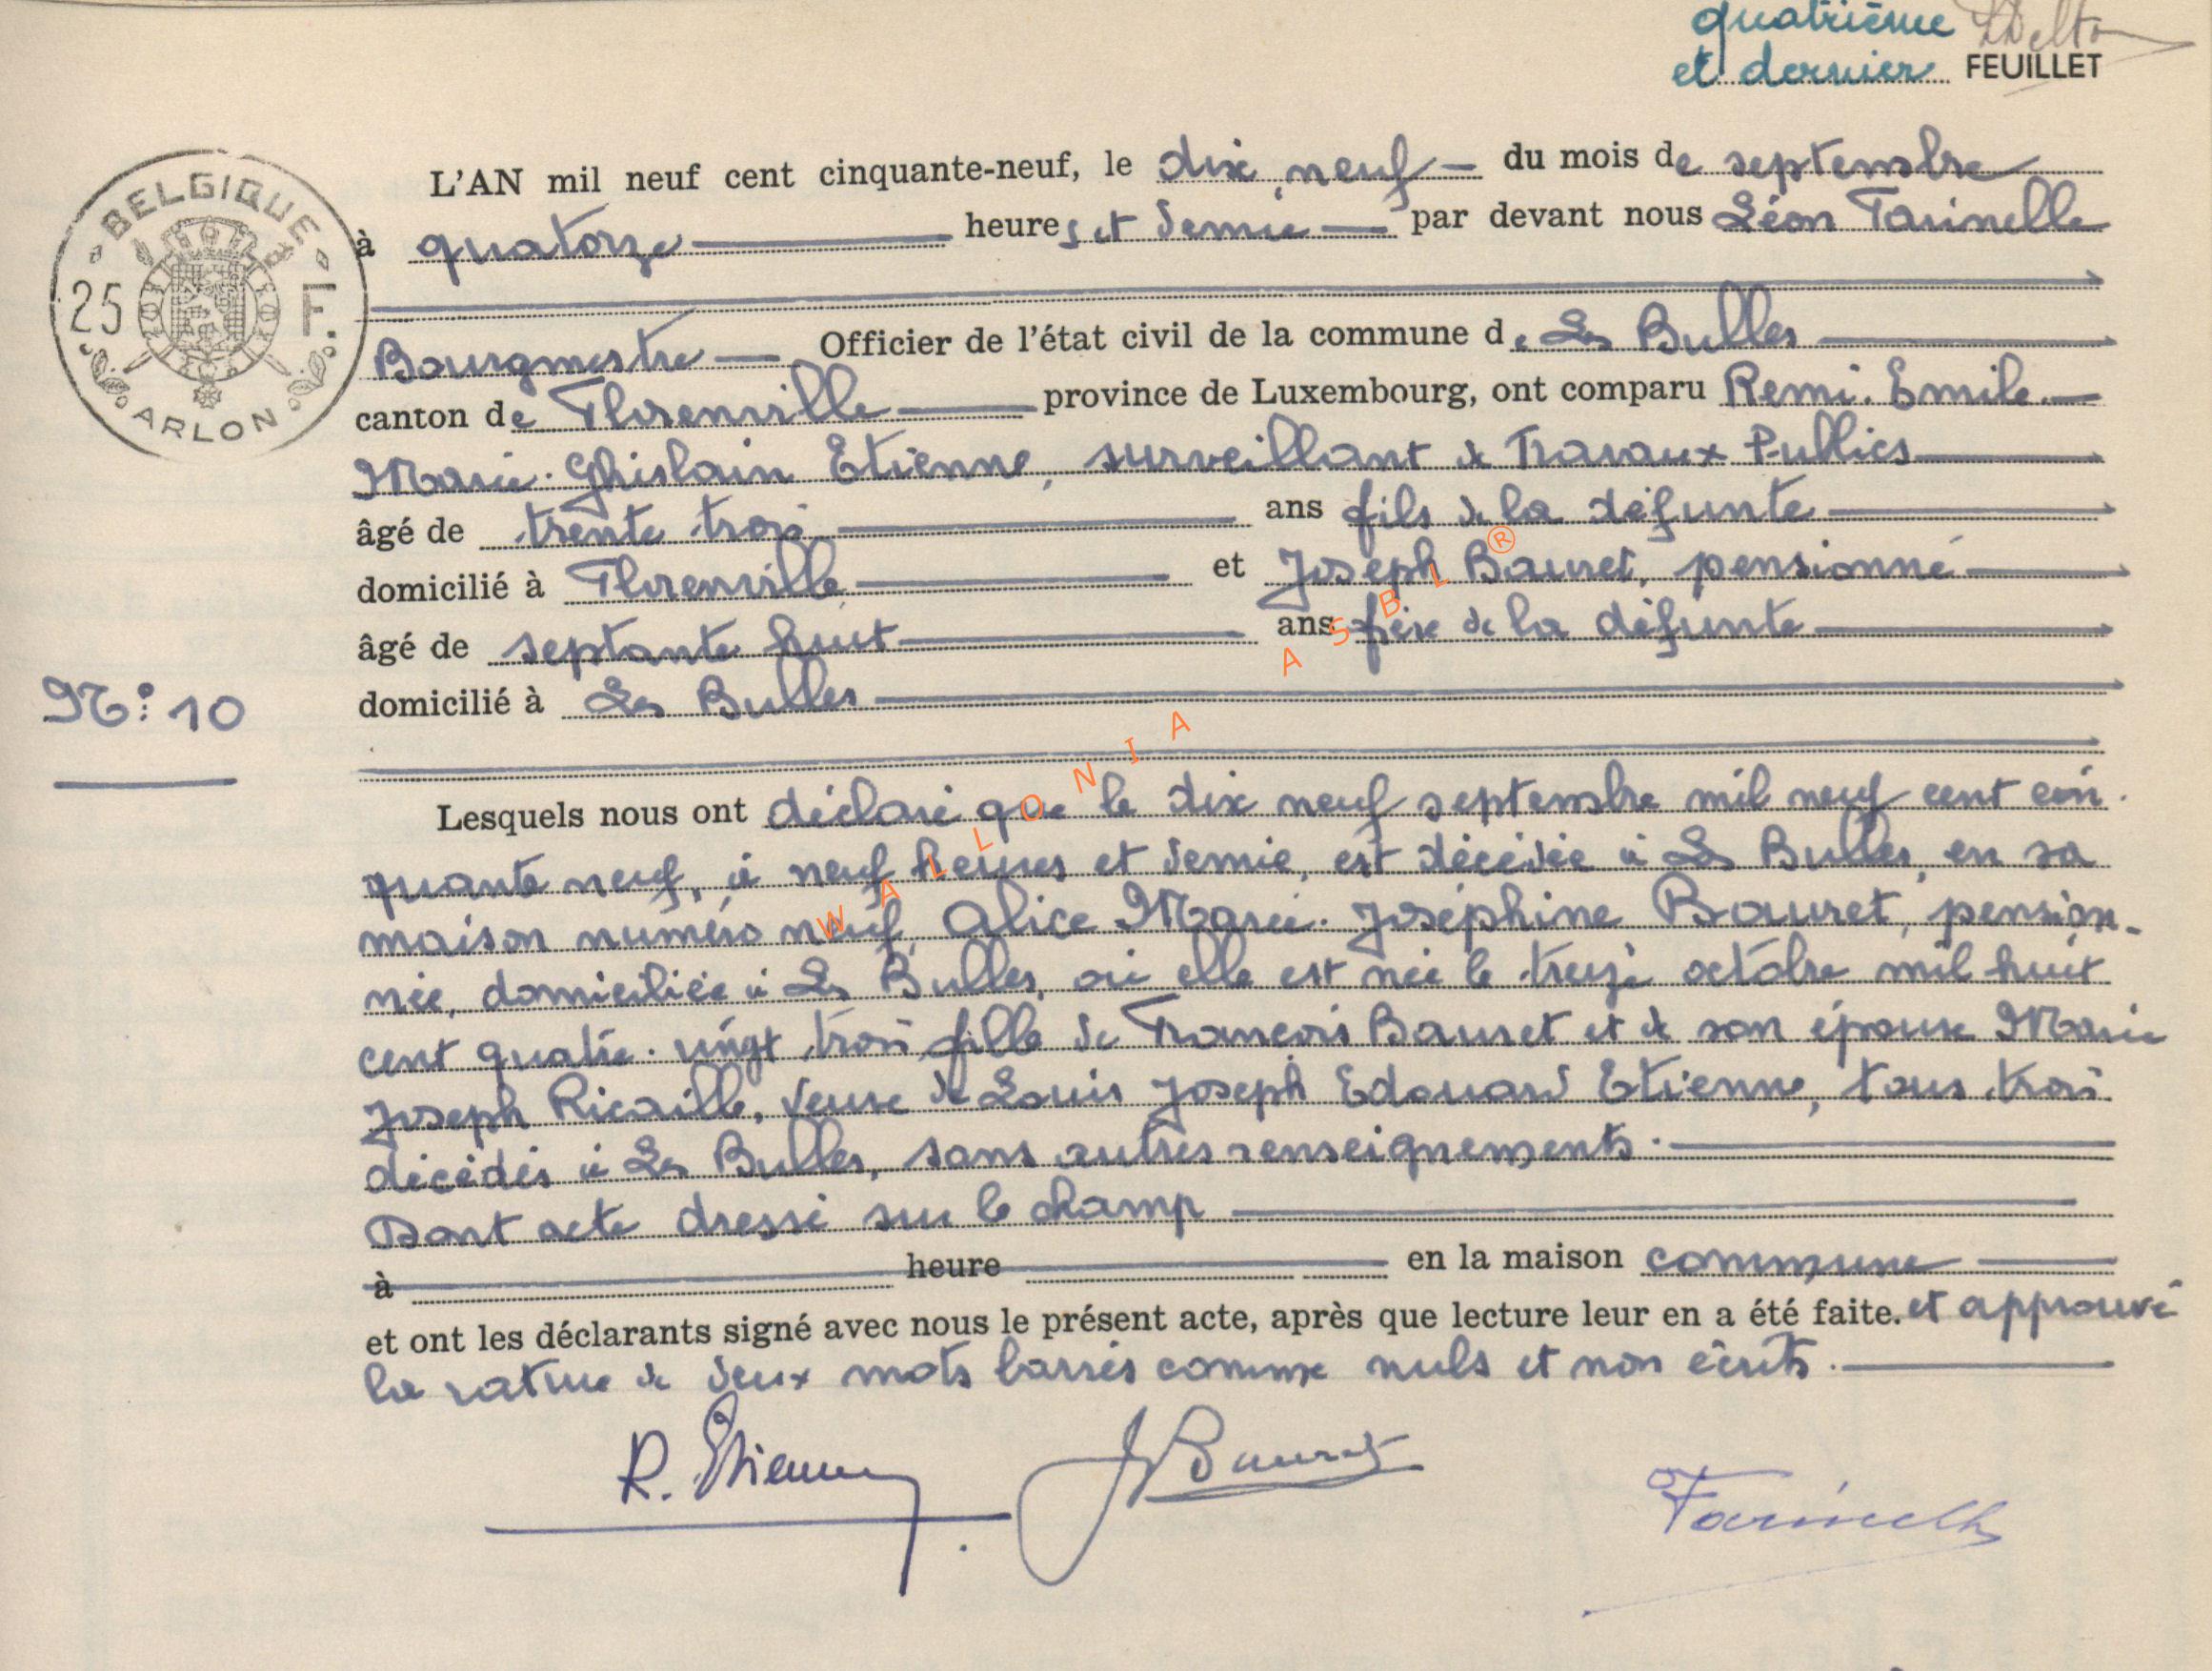 quatrième
et dernier FEUILLET
BELGIQUE
25 F.
ARLON
L'AN mil neuf cent cinquante-neuf, le dix neuf du mois de septembre
à quatorze heures et demie par devant nous Léon Farinelle
Bourgmestre Officier de l'état civil de la commune de Les Bulles
canton de Florenville province de Luxembourg, ont comparu Remi. Emile.
Marie. Ghislain Etienne, surveillant de Travaux Publics
âgé de trente trois ans fils de la défunte
domicilié à Florenville et Joseph Bauret, pensionné
âgé de septante huit ans frère de la défunte
N° 10
domicilié à Les Bulles
Lesquels nous ont déclaré que le dix neuf septembre mil neuf cent cin.
quante neuf, à neuf heures et demie, est décédée à Les Bulles, en sa
maison numéro neuf, Alice Marie. Joséphine Bauret, pension-
née, domiciliée à Les Bulles, où elle est née le treize octobre mil huit
cent quatre. vingt trois fille de François Bauret et de son épouse Marie
Joseph Ricaille, veuve de Louis Joseph Edouard Etienne, tous trois
décédés à Les Bulles, sans autres renseignements.
Dont acte dressé sur le champ
à heure en la maison commune
et ont les déclarants signé avec nous le présent acte, après que lecture leur en a été faite. et approuvé
la rature de deux mots barrés comme nuls et non écrits.
R. Etienne J Bauret Farinelle
WALLONIA ASBL ®